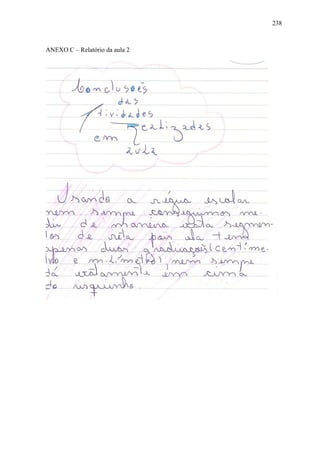 238
ANEXO C – Relatório da aula 2
Conclusões
das
Atividades
realizadas
em
aula
Usando a régua escolar
nem sempre conseguimos me-
dir de maneira exata segmen-
tos de reta pois ela tem
apenas duas graduações (centíme-
tro e milímetro), nem sempre
dá exatamente em cima
do risquinho.